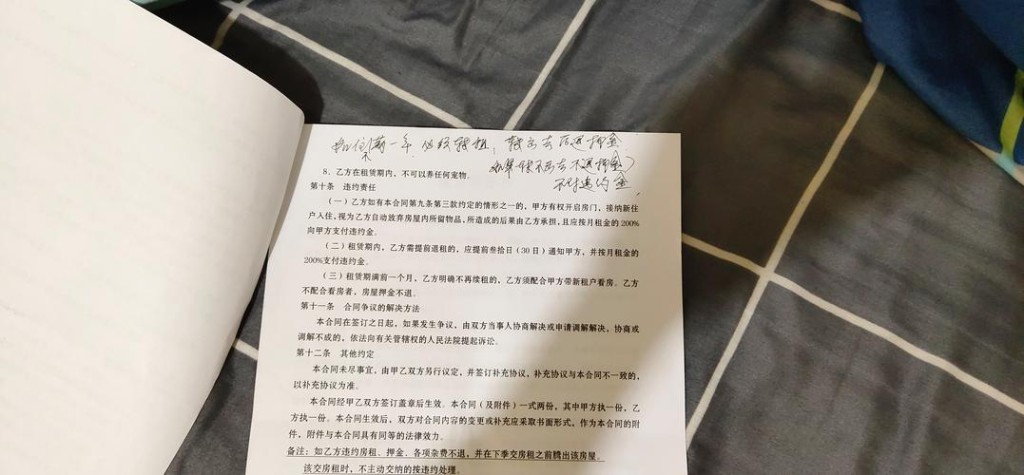 如住满一年，必须转租，转出去后退押金
不
如果转不出去不退押金）
不付违约金
8、乙方在租赁期内，不可以养任何宠物。
第十条 违约责任
（一）乙方如有本合同第九条第三款约定的情形之一的，甲方有权开启房门，接纳新住
户入住，视为乙方自动放弃房屋内所留物品，所造成的后果由乙方承担，且应按月租金的 200%
向甲方支付违约金。
（二）租赁期内，乙方需提前退租的，应提前叁拾日（30 日）通知甲方，并按月租金的
200%支付违约金。
（三）租赁期满前一个月，乙方明确不再续租的，乙方须配合甲方带新租户看房。乙方
不配合看房者，房屋押金不退。
第十一条 合同争议的解决方法
本合同在签订之日起，如果发生争议，由双方当事人协商解决或申请调解解决，协商或
调解不成的，依法向有关管辖权的人民法院提起诉讼。
第十二条 其他约定
本合同未尽事宜，由甲乙双方另行议定，并签订补充协议，补充协议与本合同不一致的，
以补充协议为准。
本合同经甲乙双方签订盖章后生效。本合同（及附件）一式两份，其中甲方执一份，乙
方执一份。本合同生效后，双方对合同内容的变更或补充应采取书面形式，作为本合同的附
件，附件与本合同具有同等的法律效力。
备注：如乙方违约房租、押金、各项杂费不退，并在下季交房租之前腾出该房屋。
该交房租时，不主动交纳的按违约处理。